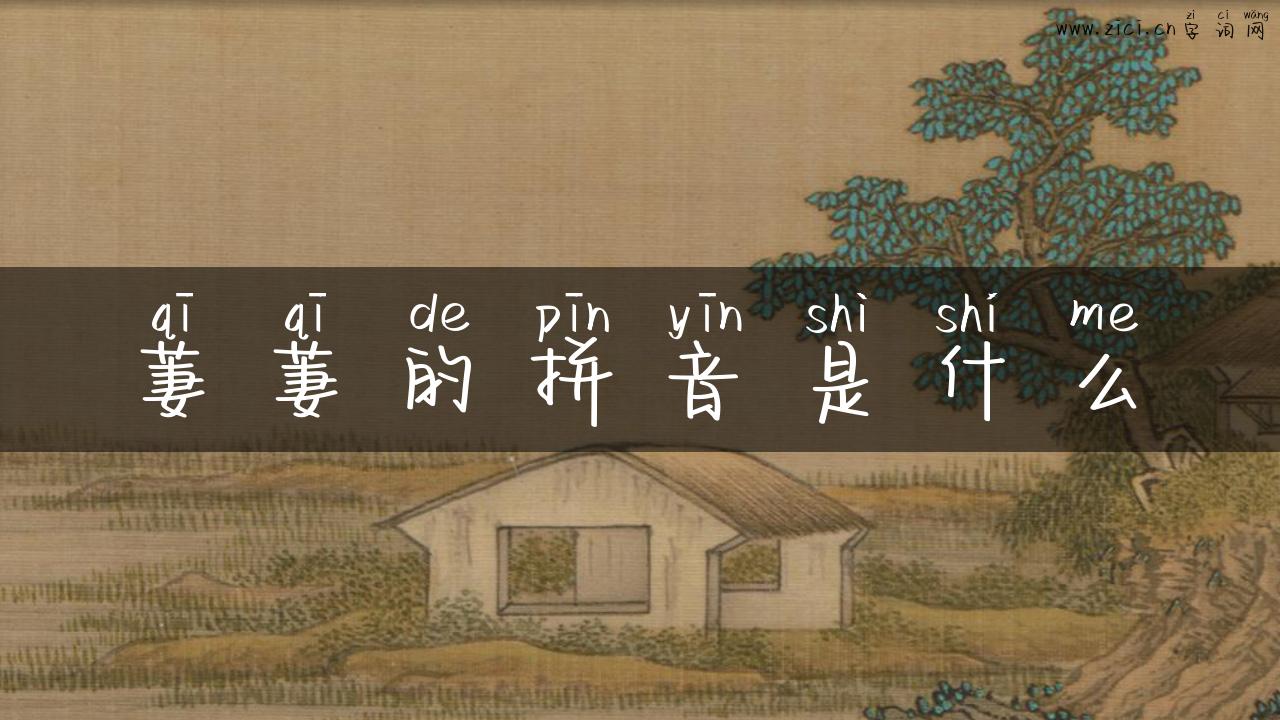 zì cí wǎng
www.zici.cn 字词网
qī qī de pīn yīn shì shí me
萋萋的拼音是什么